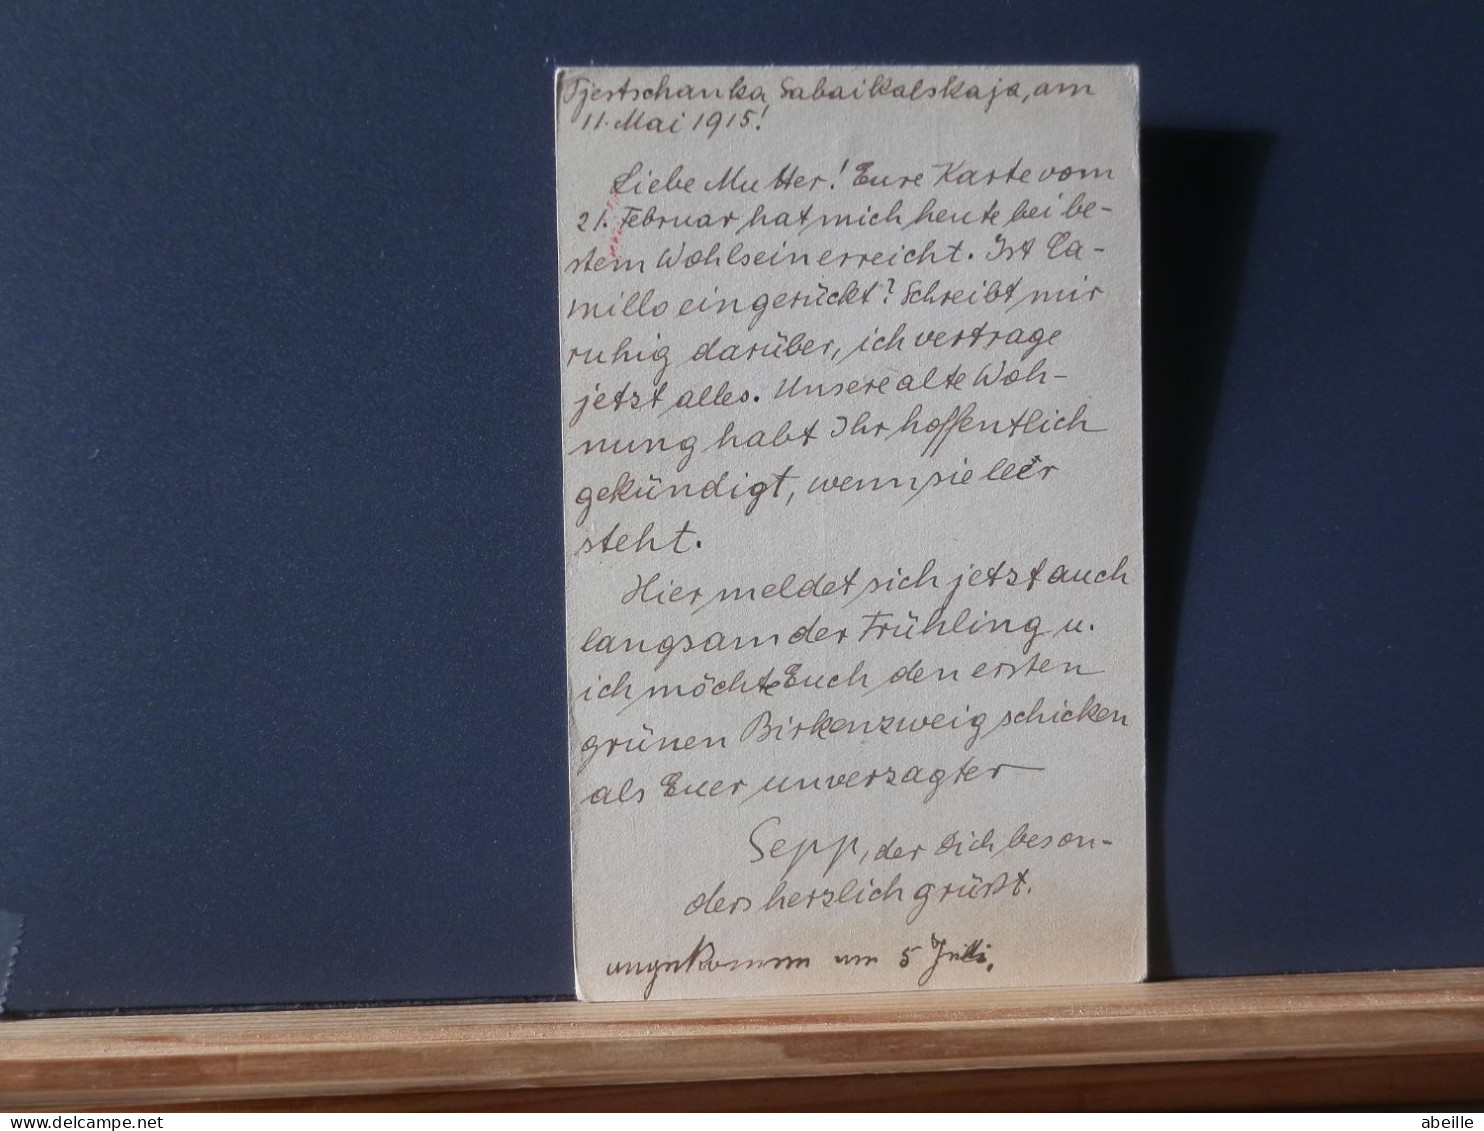 Pjestschanka, Sabaikalskaja, am
11. Mai 1915!
Liebe Mutter! Eure Karte vom
21. Februar hat mich heute bei be-
stem Wohlsein erreicht. Ist Ca-
millo eingerückt? Schreibt mir
ruhig darüber, ich vertrage
jetzt alles. Unsere alte Woh-
nung habt Ihr hoffentlich
gekündigt, wenn sie leer
steht.
Hier meldet sich jetzt auch
langsam der Frühling u.
ich möchte Euch den ersten
grünen Birkenzweig schicken
als Euer unverzagter
Sepp, der Dich beson-
ders herzlich grüßt.
angekommen am 5 Juli.
abeille